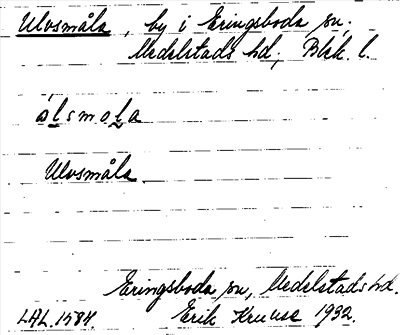 Ulvsmåla, by i Eringsboda sn.
Medelstads hd, Blek. l.
ólsmola
Ulvsmåla
Eringsboda sn, Medelstads hd.
LAL. 1584. Erik Kruuse 1932.